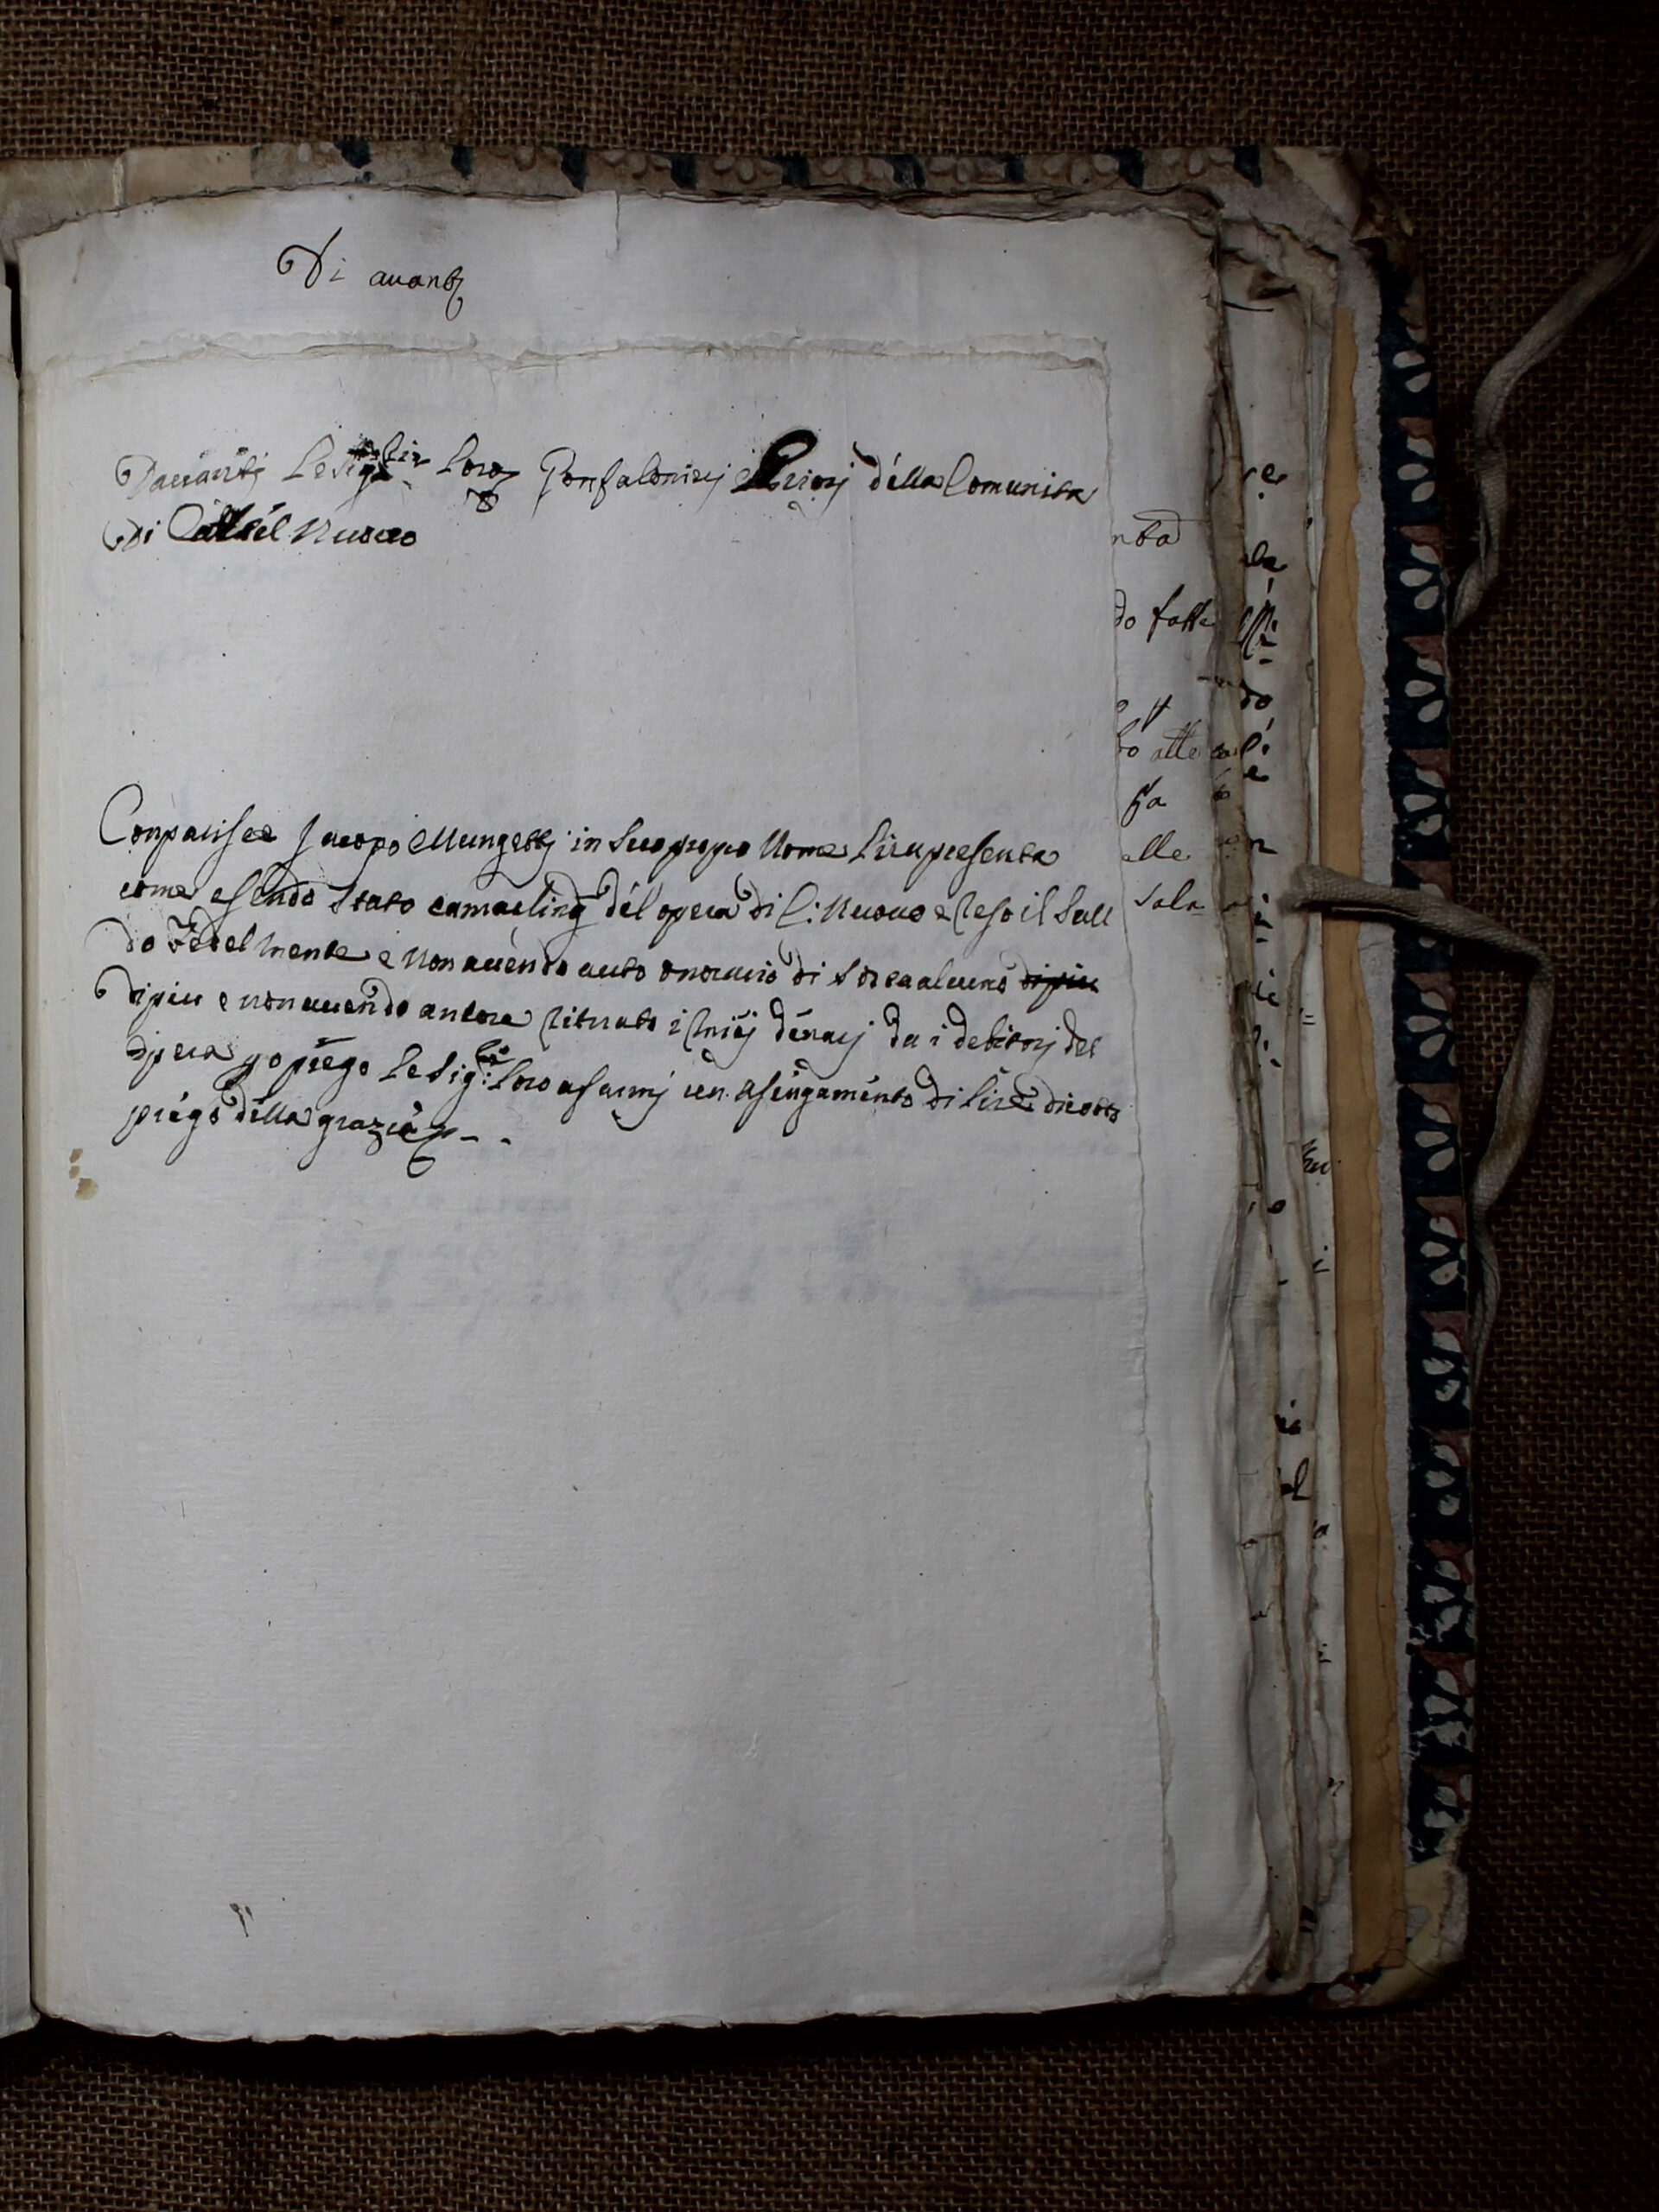 Di auantj
Dauantj Le Sig:rie Loro Gonfalonierj e Priorj della Comunita
Di Castel Nuouo
Comparisce Jacopo Mungettj in Suo propio Nome Li rapresenta
come esendo Stato camarling del opera di C: Nuouo e Reso il Sal
do Fedelmente e Non auendo auto onorario di Sorta alcuno di piu
di piu e non auendo ancora ritirato i miej denarj da i debitorj del
opera po prego Le Sig:rie Loro a farmj un asengamento di Lire diciotto
prego della grazia
nta
do fatte
to atte
sa
elle
Sala